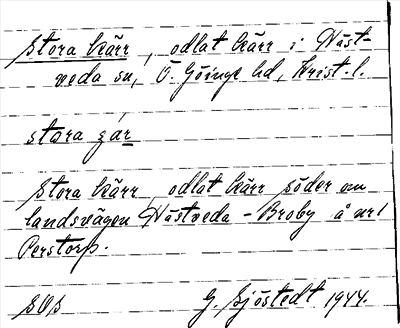 Stora kärr, odlat kärr i Väst-
veda sn, Ö. Göinge hd, Krist. l.
stora
Stora kärr, odlat kärr söder om
landsvägen Västveda - Broby å nr 1
Perstorp.
SOS G. Sjöstedt 1944.